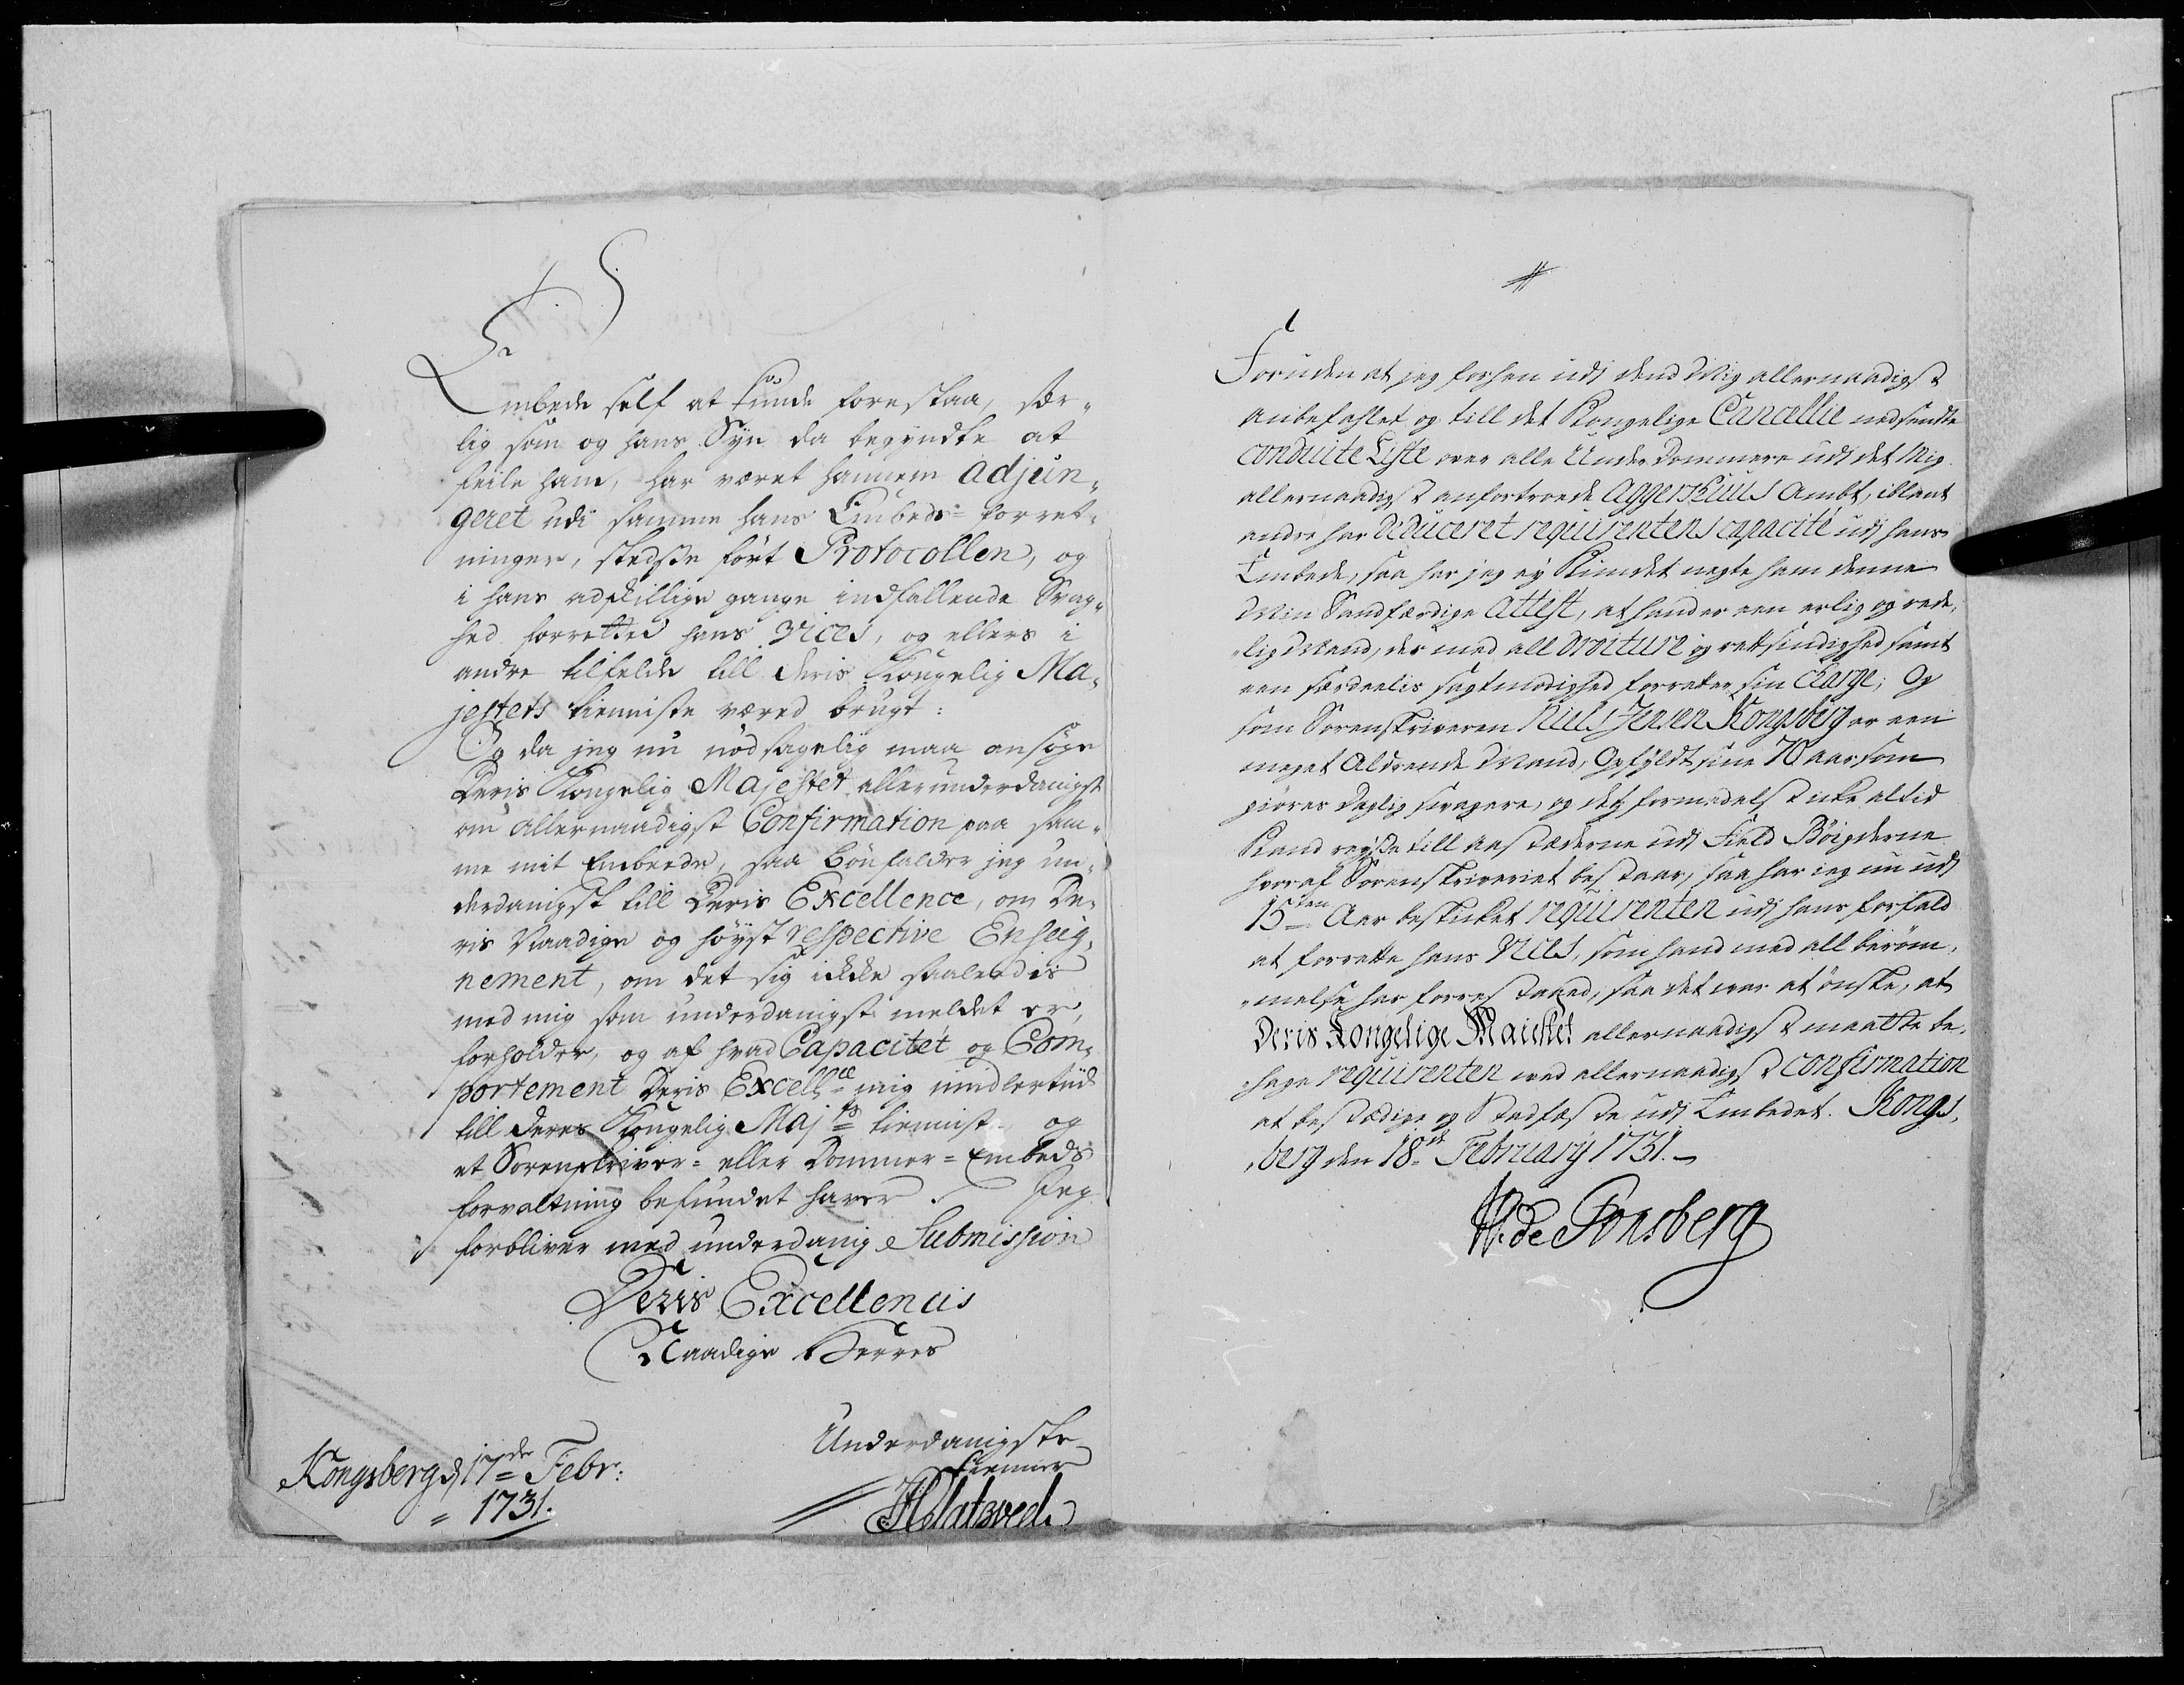 Embede self at kunde forestaa, sær¬
lig som og hans Syn da begyndte at
feile ham, har været hannem adjun¬
geret udi samme hans Embeds= forret¬
ninger, stedse ført Protocollen, og
i hans adskillige gange indfallende Svag¬
hed forrettet hans vices, og ellers i
andre tilfelde till Deris Kongelig Ma¬
jestets tienniste været brugt:
Og da jeg nu nødsagelig maa ansøge
Deris Kongelig Majestet allerunderdanigst
om allernaadigst Confirmation paa sam¬
me mit Embede, saa bønfalder jeg un¬
derdanigst till Deris Excellence, om De¬
ris Naadige og høyst respective Enseig¬
nement, om det sig ikke saaledis
med mig som underdanigst meldet er,
forholder, og af hvad Capacitet og Com¬
portement Deris Excell: mig imidlertiid
till Deres Kongelig Majts tienniste og
et Sorenskriver= eller Dommer= Embeds
forvaltning befundet haver. Jeg
forbliver med underdanig Submission
Deris Excellencis
Naadige Herres
Underdanigste
tienner
Kongsberg d 17de Febr:
1731.
Foruden at jeg forhen udj dend Mig allernaadigst
anbefahlet og till det Kongelige Cancellie nedsendte
conduite Liste over alle Under Dommere udj det Mig
allernaadigst anfortroede Aggershuus Ambt, iblant
andre har deduceret requirentens capacité udj hans
Embede, saa har jeg ej Kundet negte ham denne
Min Sandfærdige Attest, at hand er een erlig og rede¬
lig Mand, der med all droiture og retsindighed samt
een særdeelis sagtmodighed forretter sin Charge; Og
som Sorenskriveren Niels Jensen Kongsberg er een
meget Aldrende Mand, Opfyldt sine 70 aar som
giøres Daglig svagere, og dets formedelst icke altid
Kand reyse till aastæderne udj Field Bøigderne
hvoraf Sorenskriveriet bestaar, saa har jeg nu udj
15ten Aar beskicket requirenten udj hans forfald
at forrette hans Vices, som hand med all berøm¬
melse har forrestaaed, saa det var at ønske, at
Deris Kongelige Maiestet allernaadigst maatte be¬
hage requirenten med allernaadigst confirmation
at bestædige og Stadfæste udj Embedet. Kongs¬
berg den 18de February 1731.
W: de Tonsberg